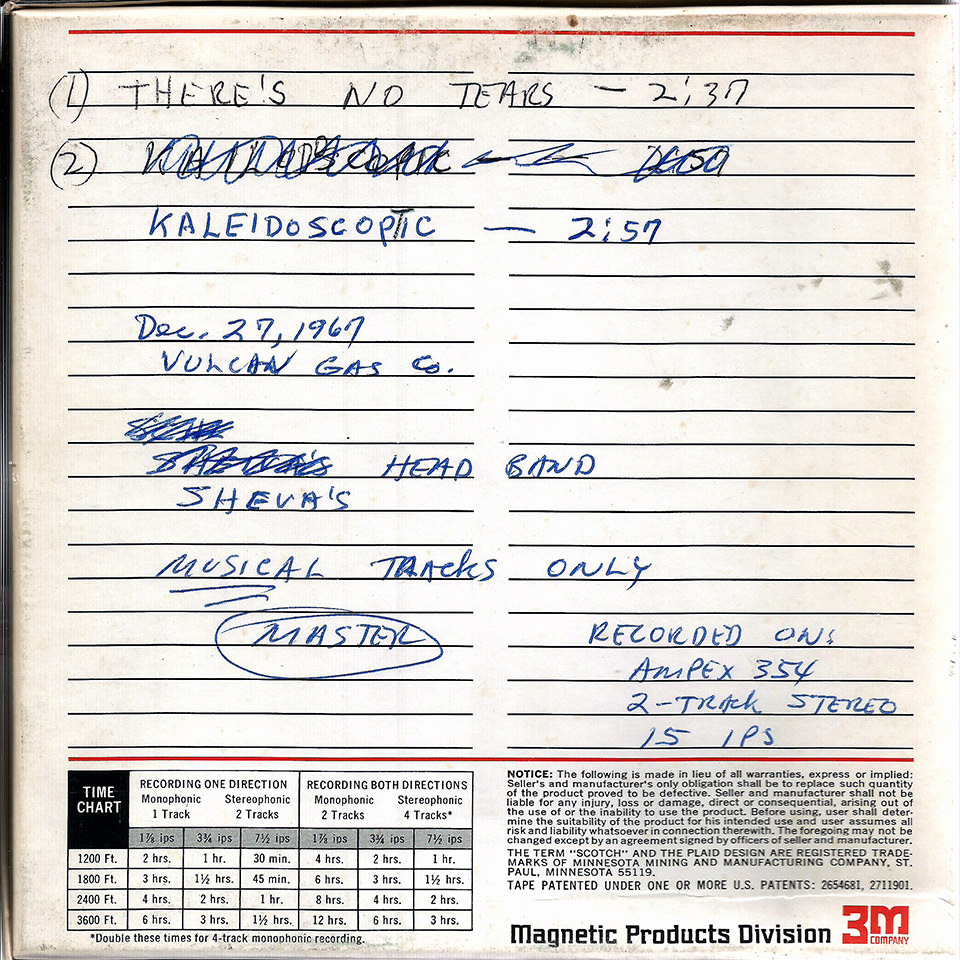 (1) THERE'S NO TEARS — 2:37
(2)
KALEIDOSCOPTIC — 2:57
Dec. 27, 1967
VULCAN GAS Co.
HEAD BAND
SHEVA'S
MUSICAL TRACKS ONLY
MASTER
RECORDED ON:
AMPEX 354
2-TRACK STEREO
15 IPS
TIME CHART
RECORDING ONE DIRECTION RECORDING BOTH DIRECTIONS
Monophonic 1 Track Stereophonic 2 Tracks Monophonic 2 Tracks Stereophonic 4 Tracks*
1⅞ ips 3¾ ips 7½ ips 1⅞ ips 3¾ ips 7½ ips
1200 Ft. 2 hrs. 1 hr. 30 min. 4 hrs. 2 hrs. 1 hr.
1800 Ft. 3 hrs. 1½ hrs. 45 min. 6 hrs. 3 hrs. 1½ hrs.
2400 Ft. 4 hrs. 2 hrs. 1 hr. 8 hrs. 4 hrs. 2 hrs.
3600 Ft. 6 hrs. 3 hrs. 1½ hrs. 12 hrs. 6 hrs. 3 hrs.
*Double these times for 4-track monophonic recording.
NOTICE: The following is made in lieu of all warranties, express or implied:
Seller's and manufacturer's only obligation shall be to replace such quantity
of the product proved to be defective. Seller and manufacturer shall not be
liable for any injury, loss or damage, direct or consequential, arising out of
the use of or the inability to use the product. Before using, user shall deter-
mine the suitability of the product for his intended use and user assumes all
risk and liability whatsoever in connection therewith. The foregoing may not be
changed except by an agreement signed by officers of seller and manufacturer.
THE TERM "SCOTCH" AND THE PLAID DESIGN ARE REGISTERED TRADE-
MARKS OF MINNESOTA MINING AND MANUFACTURING COMPANY, ST.
PAUL, MINNESOTA 55119.
TAPE PATENTED UNDER ONE OR MORE U.S. PATENTS: 2654681, 2711901.
Magnetic Products Division 3M COMPANY